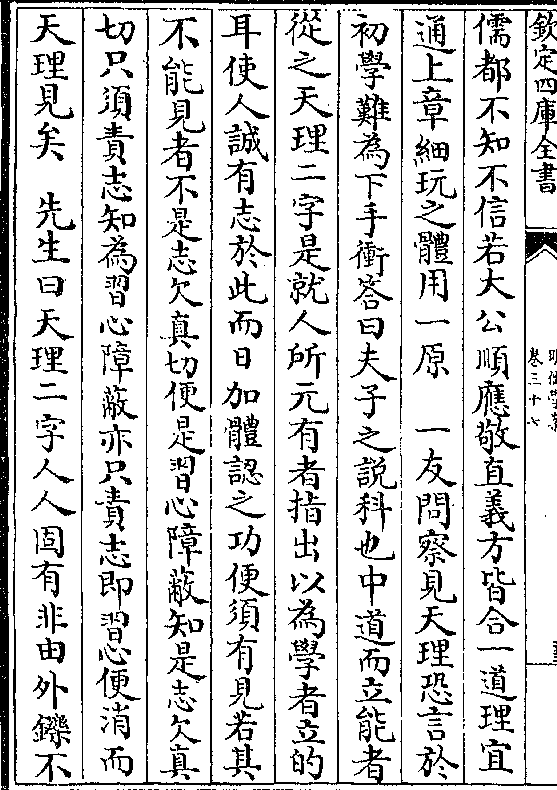 欽定四庫全書
明儒學案
卷三十六
儒都不知不信若大公順應敬直義方皆合一道理宜
通上章細玩之體用一原　一友問察見天理恐言於
初學難為下手衝答曰夫子之説科也中道而立能者
從之天理二字是就人所元有者指出以為學者立的
耳使人誠有志於此而日加體認之功便須有見若其
不能見者不是志欠真切便是習心障蔽知是志欠真
切只須責志知為習心障蔽亦只責志即習心便消而
天理見矣　先生曰天理二字人人固有非由外鑠不